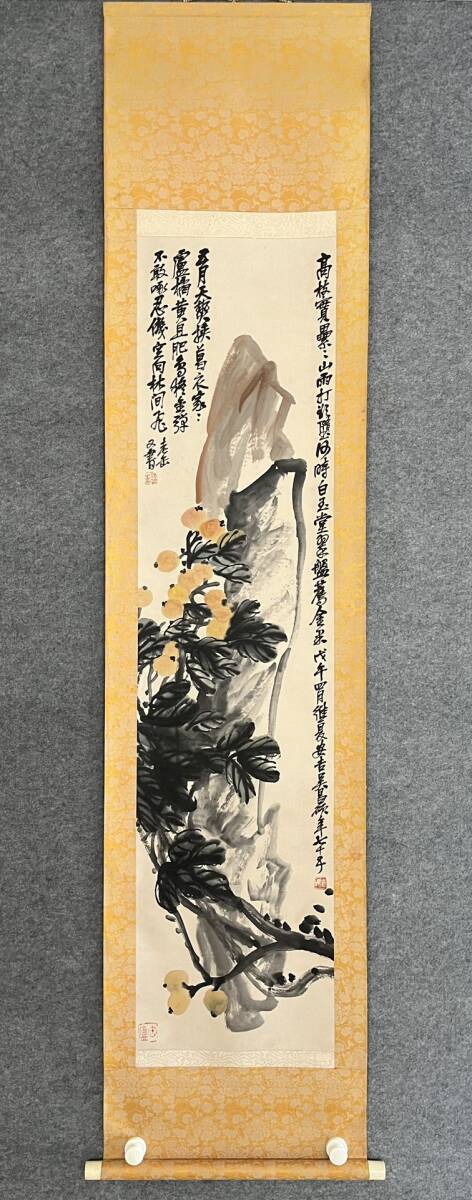 高枝實纍〻山雨打欲墮何時白玉堂翠盤薦金果戊午四月維夏安吉吳昌碩年七十五
五月天熱換葛衣家〻
盧橘黃且肥鳥疑金彈
不敢啄忍饑空向林間飛
老缶
又書